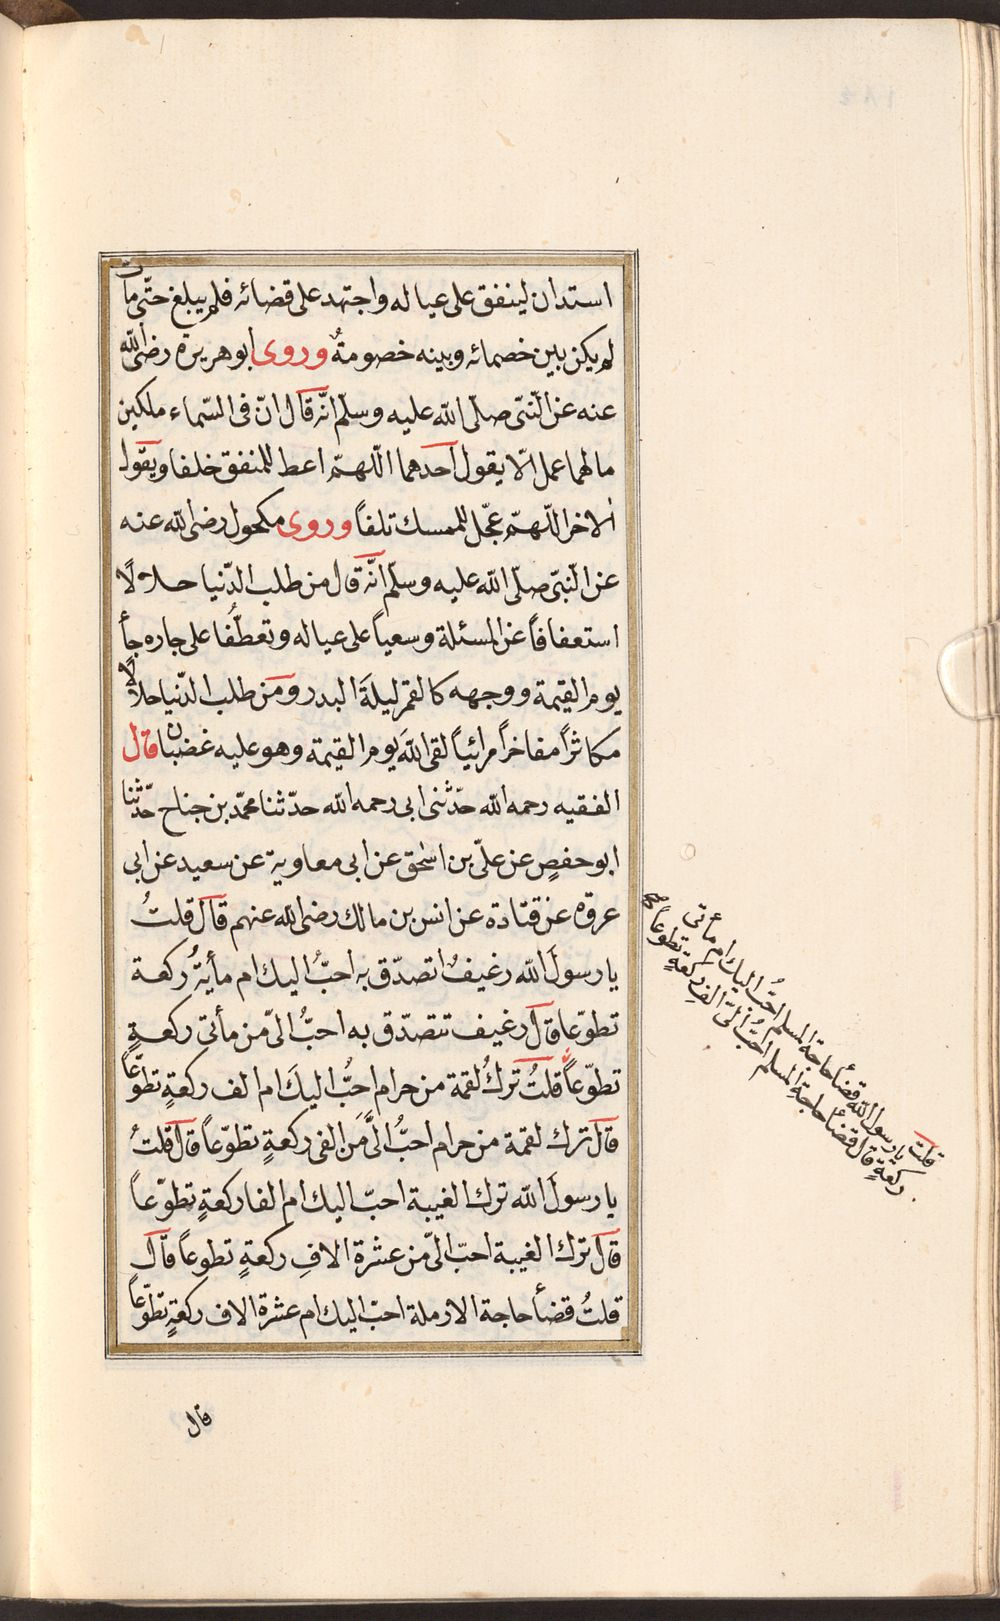 استدان لينفق على عياله واجتهد على قضائه فلم يبلغ حتّى مات
لم يكن بين خصمائه وبينه خصومةٌ وروى ابو هريرة رضى الله
عنه عن النّبىّ صلّى الله عليه وسلّم انّه قال انّ فى السّماء ملكين
مالهما عمل الّا يقول احدهما اللّهمّ اعط للمنفق خلفا ويقول
الاخر اللّهمّ عجّل للممسك تلفاً وروى مكحول رضى الله عنه
عن النّبىّ صلّى الله عليه وسلّم انّه قال من طلب الدّنيا حلالًا
استعفافاً عن المسئلة وسعياً على عياله وتعطّفا على جاره جأ
يوم القيمة ووجهه كالقمر ليلةَ البدر ومن طلب الدّنيا حلالًا
مكاثراً مفاخراً مرائياً لقى اللهَ يوم القيمة وهو عليه غضبان قال
الفقيه رحمه الله حدّثنى ابى رحمه الله حدّثنا محمّد بن جناح حدّثنا
ابو حفصٍ عن علىّ بن اسحق عن ابى معاوية عن سعيد عن ابى
عروه عن قتادة عن انس بن مالك رضى الله عنهم قال قلتُ
يا رسولَ الله رغيفٌ اتصدّق به احبُّ اليك ام مأيةُ ركعة
تطوّعا قال رغيف تتصدّق به احبُّ الىّ من مأتى ركعةٍ
تطوّعاً قلتُ تركُ لقمة من حرام احبُّ اليكَ ام الف ركعةٍ تطوّعاً
قال ترك لقمة من حرام احبُّ الىَّ من الفى ركعةٍ تطوّعاً قال قلتُ
يا رسولَ الله ترك الغيبة احبّ اليك ام الفا ركعةٍ تطوّعاً
قال ترك الغيبة احبّ الىّ من عشرة الافِ ركعةٍ تطوعاً قال
قلتُ قضأ حاجة الارملة احبّ اليك ام عشرة الاف ركعةٍ تطوّعاً
قلت يا رسول الله قضأ حاجة المسلم احبُّ اليك ام مأتى
ركعةٍ قال قضأ حاجةِ المسلم احبُّ الىّ الفِ ركعةٍ تطوعاً صح
قال